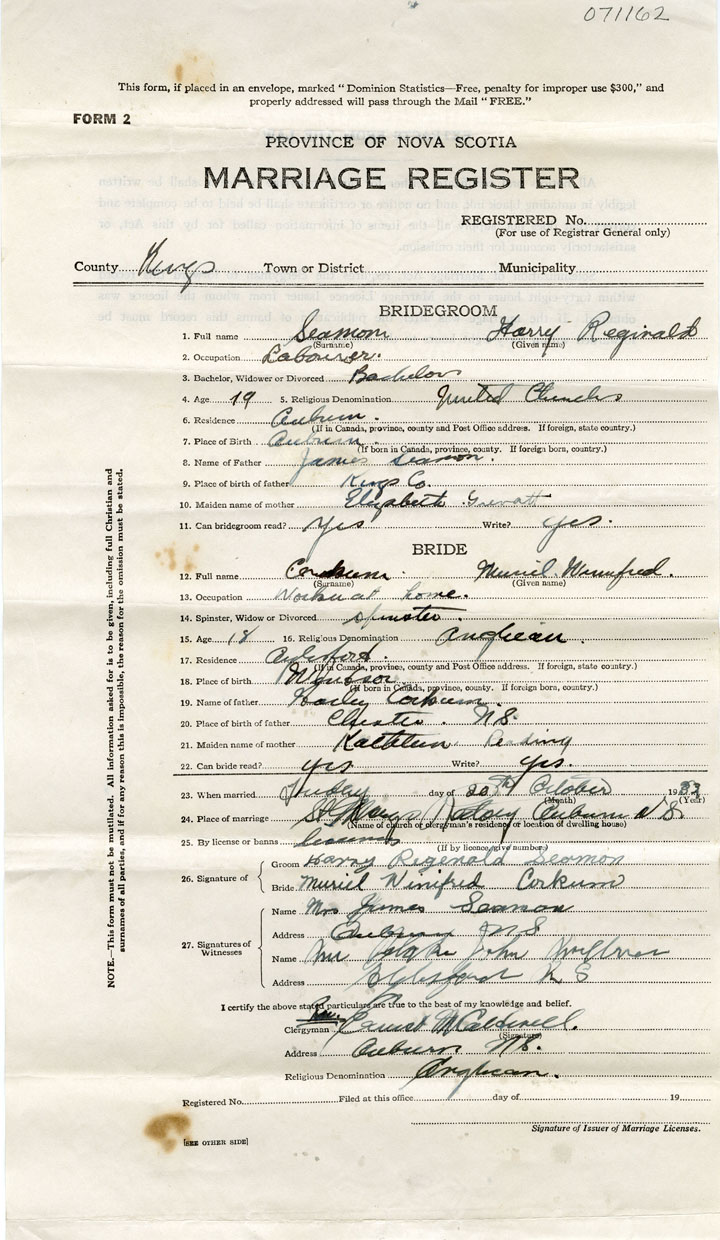 071162
This form, if placed in an envelope, marked "Dominion Statistics—Free, penalty for improper use $300," and
properly addressed will pass through the Mail "FREE."
FORM 2
PROVINCE OF NOVA SCOTIA
MARRIAGE REGISTER
REGISTERED No.
(For use of Registrar General only)
County Kings Town or District Municipality
BRIDEGROOM
1. Full name Seamon Harry Reginald
(Surname) (Given name)
2. Occupation Labourer.
3. Bachelor, Widower or Divorced Bachelor
4. Age 19 5. Religious Denomination United Church
6. Residence Auburn.
(If in Canada, province, county and Post Office address. If foreign, state country.)
7. Place of Birth Auburn.
(If born in Canada, province, county. If foreign born, country.)
8. Name of Father James Seamon.
9. Place of birth of father Kings Co.
10. Maiden name of mother Elizabeth
11. Can bridegroom read? Yes Write? yes.
BRIDE
12. Full name Corkum. Muriel Winnifred.
(Surname) (Given name)
13. Occupation Works at home.
14. Spinster, Widow or Divorced spinster.
15. Age 18 16. Religious Denomination Anglican.
17. Residence Aylesford.
(If in Canada, province, county and Post Office address. If foreign, state country.)
18. Place of birth Windsor
(If born in Canada, province, county. If foreign born, country.)
19. Name of father Corkum.
20. Place of birth of father Chester. N.S.
21. Maiden name of mother Kathleen Reading
22. Can bride read? yes Write? yes.
23. When married day of 20th October 1933
(Month) (Year)
24. Place of marriage St Marys Rectory Auburn N.S.
(Name of church or clergyman's residence or location of dwelling house)
25. By license or banns
(If by licence give number)
26. Signature of
Groom Harry Reginald Seamon
Bride Muriel Winifred Corkum
27. Signatures of Witnesses
Name Mrs James Seamon
Address Auburn N S
Name John
Address Aylesford N S
I certify the above stated particulars are true to the best of my knowledge and belief.
Rev.
Clergyman Ernest M Caldwell.
(Signature)
Address Auburn N.S.
Religious Denomination Anglican.
Registered No. Filed at this office day of 19
Signature of Issuer of Marriage Licenses.
[SEE OTHER SIDE]
NOTE.—This form must not be mutilated. All information asked for is to be given, including full Christian and
surnames of all parties, and if for any reason this is impossible, the reason for the omission must be stated.